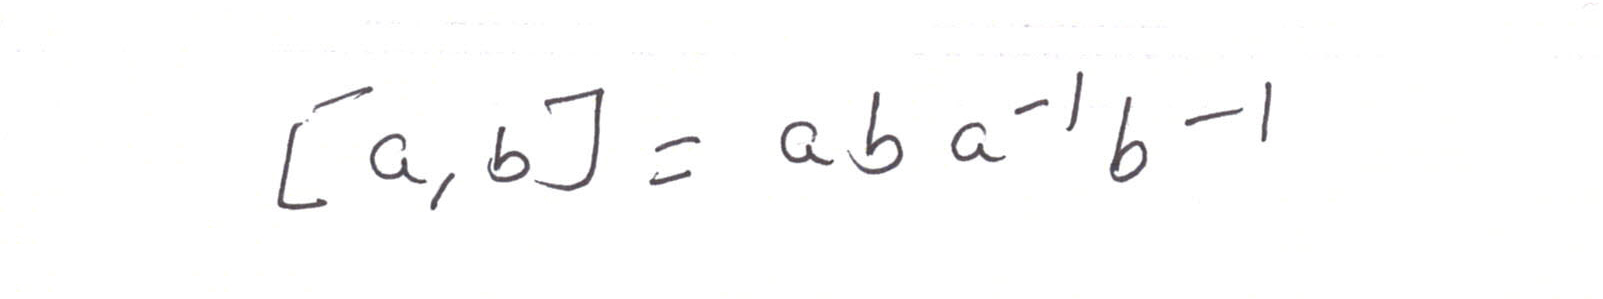 [a, b] = a b a⁻¹ b⁻¹